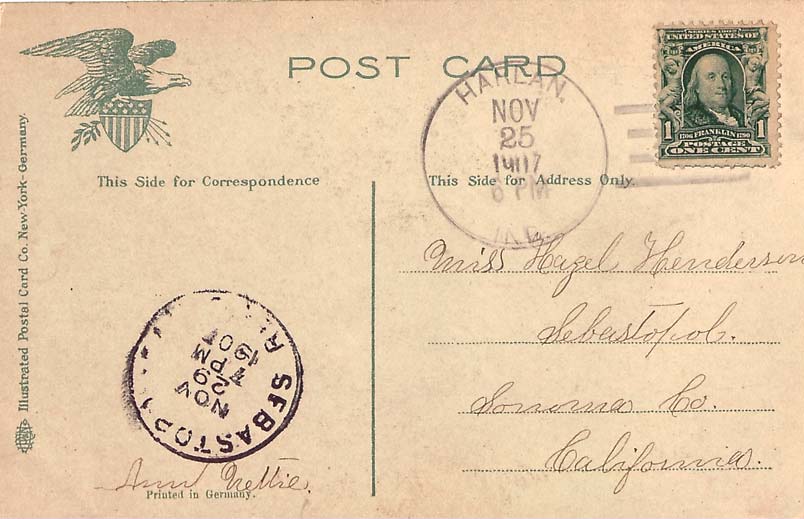 POST CARD
SERIES 1902
UNITED STATES OF
AMERICA
1 1706 FRANKLIN 1790 1
POSTAGE
ONE CENT
HARLAN,
NOV
25
1907
6 PM
IND.
This Side for Correspondence
This Side for Address Only.
Illustrated Postal Card Co. New-York-Germany.
Miss Hazel Henderson
Sebastopol.
Sonoma Co.
California.
SEBASTOPOL
NOV
29
7 PM
1907
Aunt Nettie.
Printed in Germany.